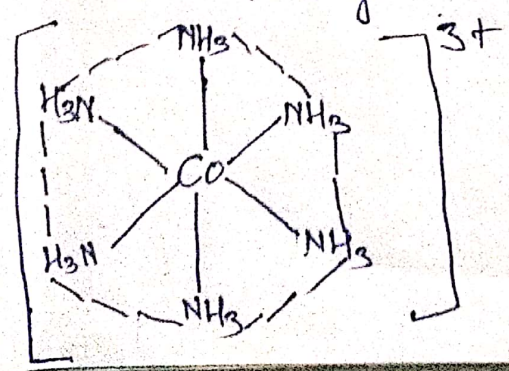 NH3
3+
H3N
NH3
Co
H3N
NH3
NH3